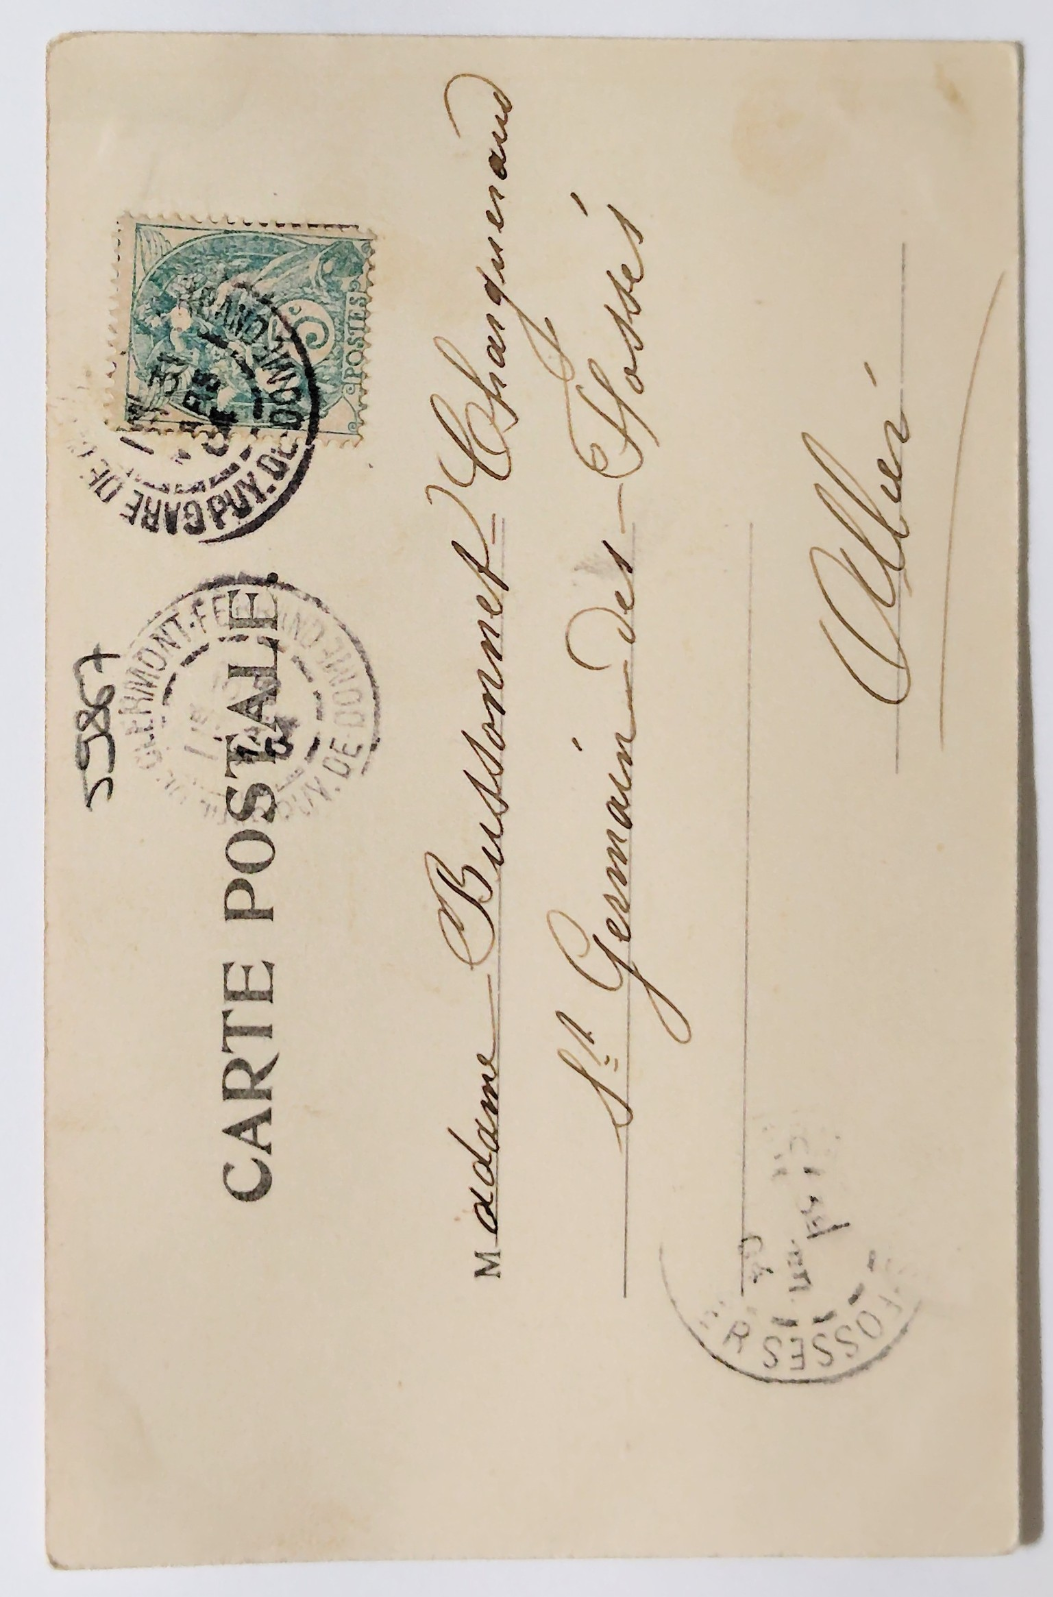 55867
CARTE POSTALE.
5c
POSTES
GARE DE
PUY-DE-DOME
GARE DE CLERMONT-FERRAND
PUY-DE-DOME
Madame Bussonnet-Changueraud
St Germain-des-Fossés
Allier
FOSSES